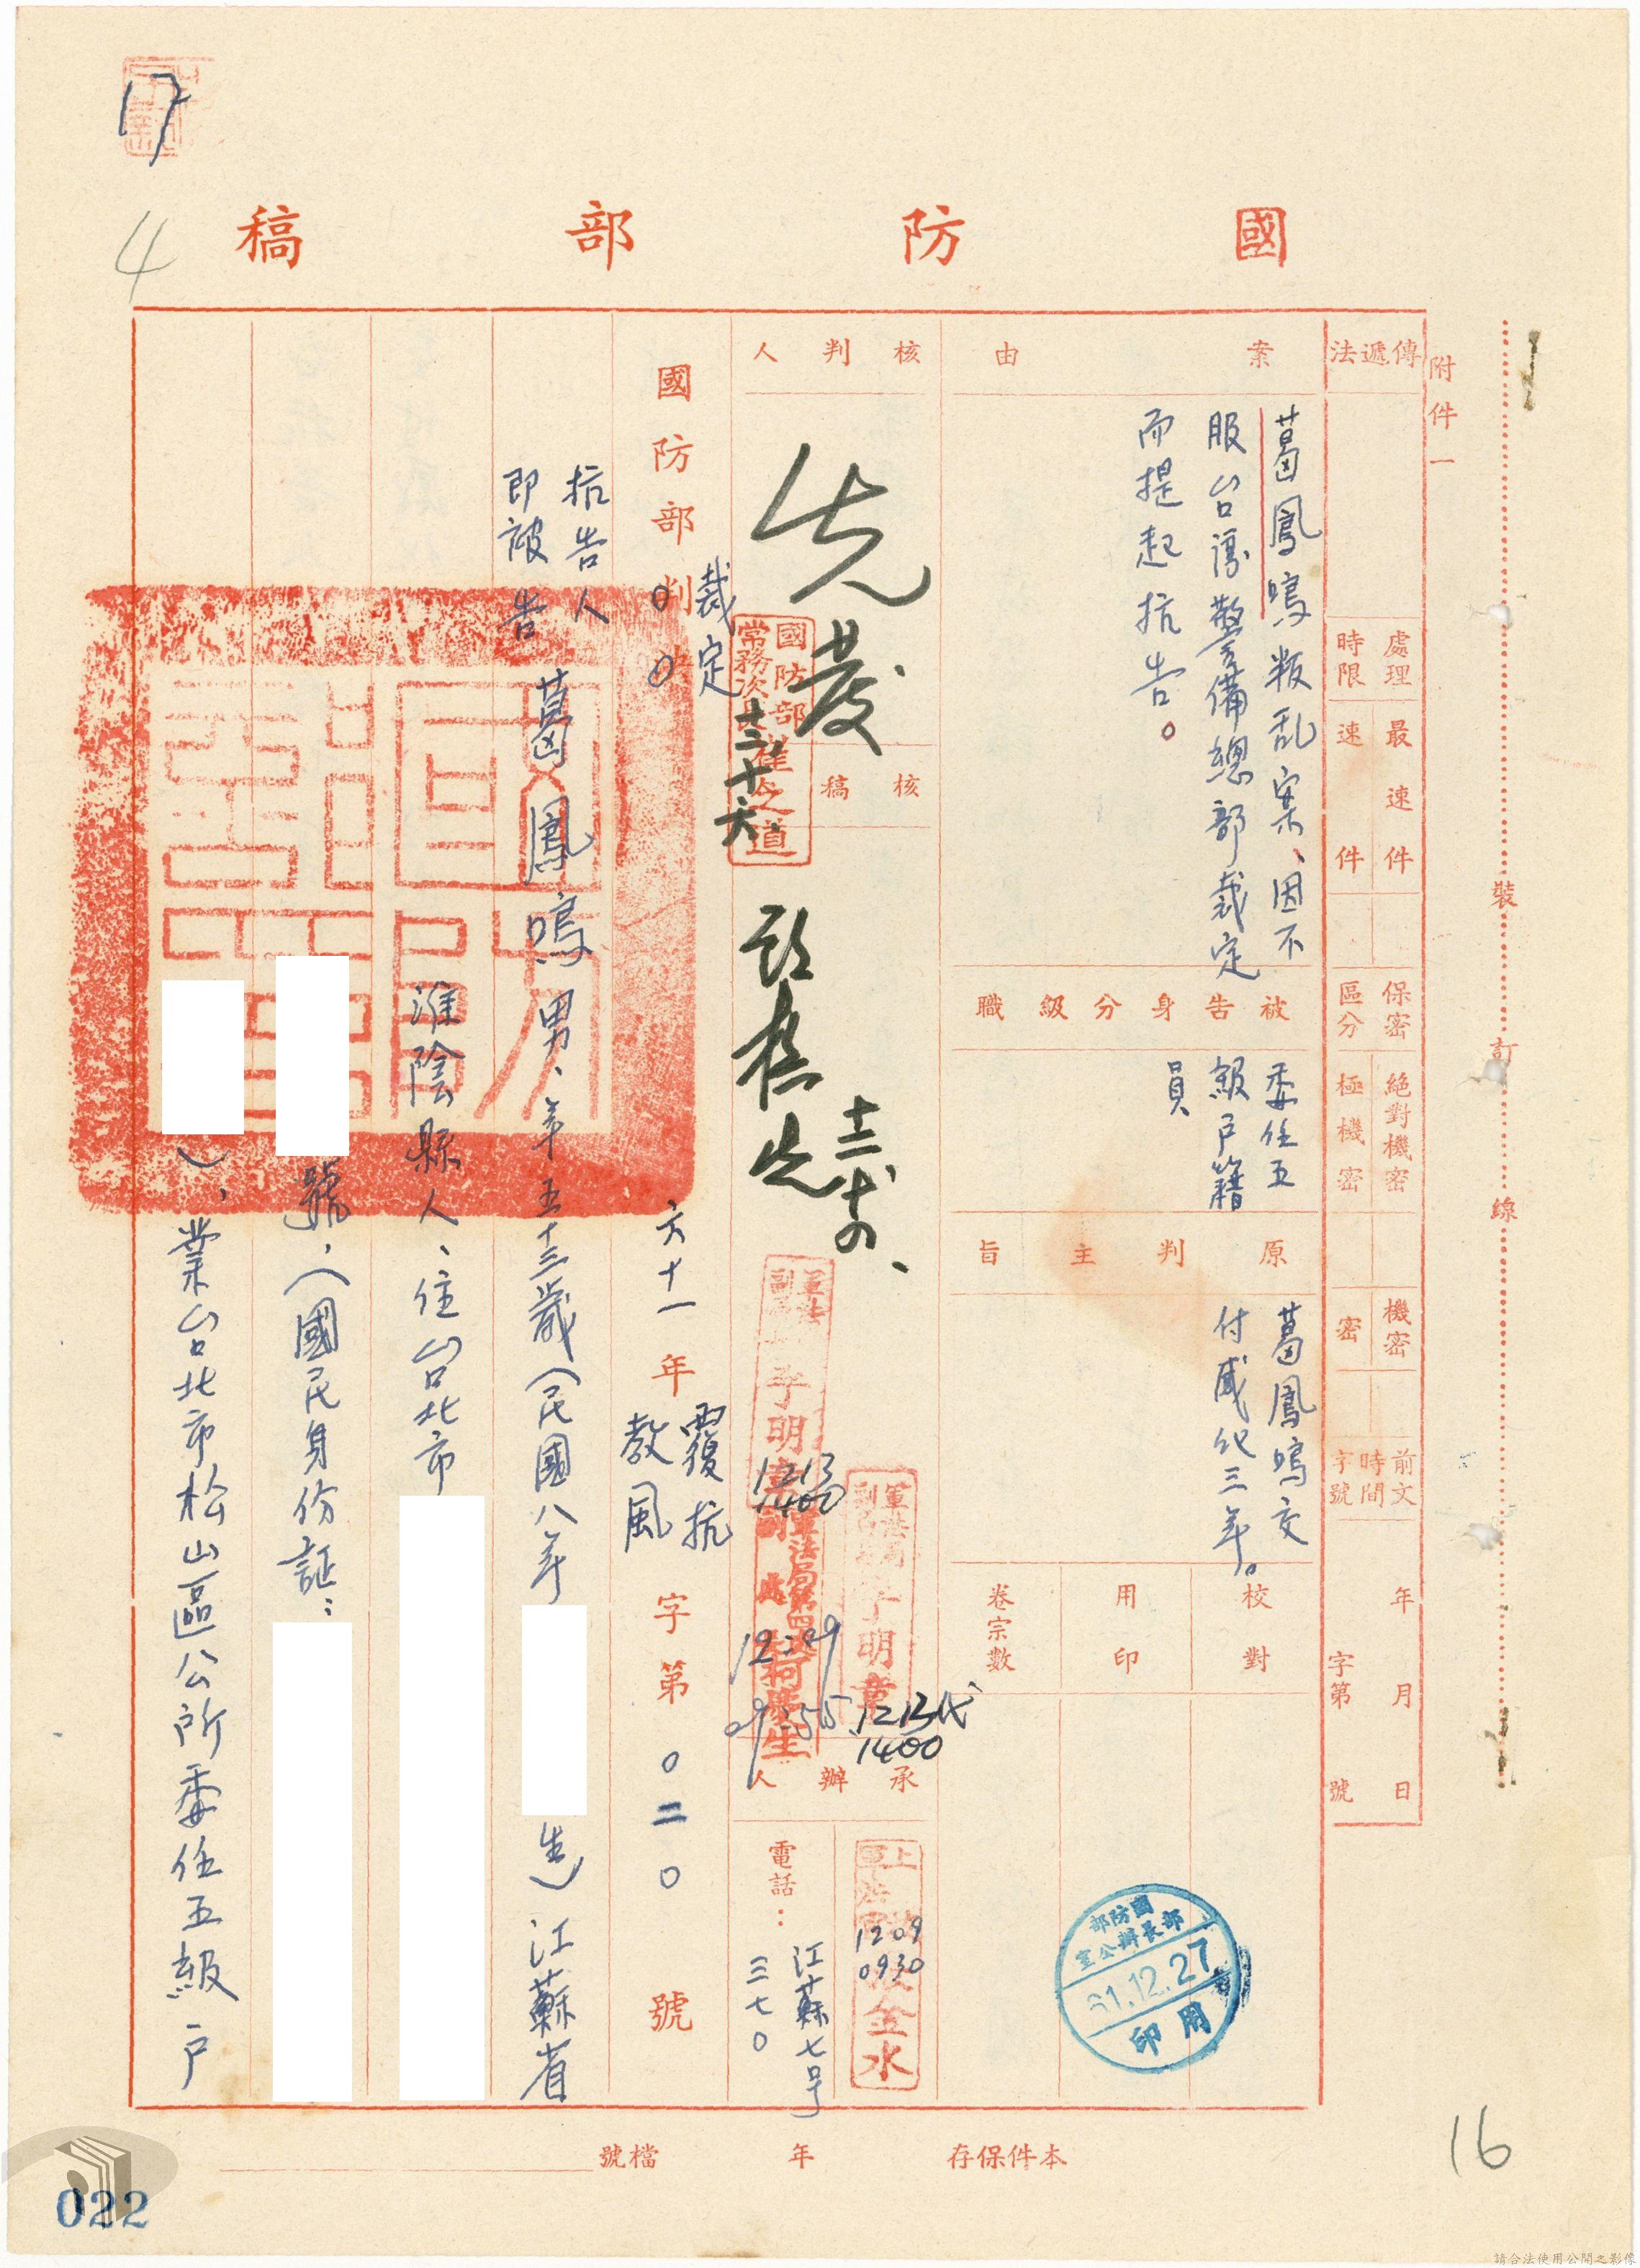 國防部稿
附件一
傳遞法
處理時限
最速件
速件
保密區分
絕對機密
極機密
機密
密
前文時間字號
年月日
字第號
案由
葛鳳鳴叛乱案、因不
服台灣警備總部裁定
而提起抗告。
被告身分級職
委任五
級戶籍
員
原判主旨
葛鳳鳴交
付感化三年。
校對
用印
卷宗數
國防部
部長辦公室
61.12.27
用印
核判人
先發
國防部
常務次長崔之道
十二、十六
核稿
十二
1213
1400
軍法局
副局長
明章
1213代
1400
軍法局第四處
12:09
09:55
承辦人
上
軍法官
金水
1209
0930
電話：
江蘇七号
三七〇
國防部判決
裁定
六十一年
覆抗
教風
字第〇二〇號
抗告人
即被告
葛鳳鳴 男、年五十三歲（民國八年
生）江蘇省
淮陰縣人、住台北市
號、（國民身份証：
）、業台北市松山區公所委任五級戶
裝訂線
本件保存年
檔號
17
4
16
022
請合法使用公開之影像